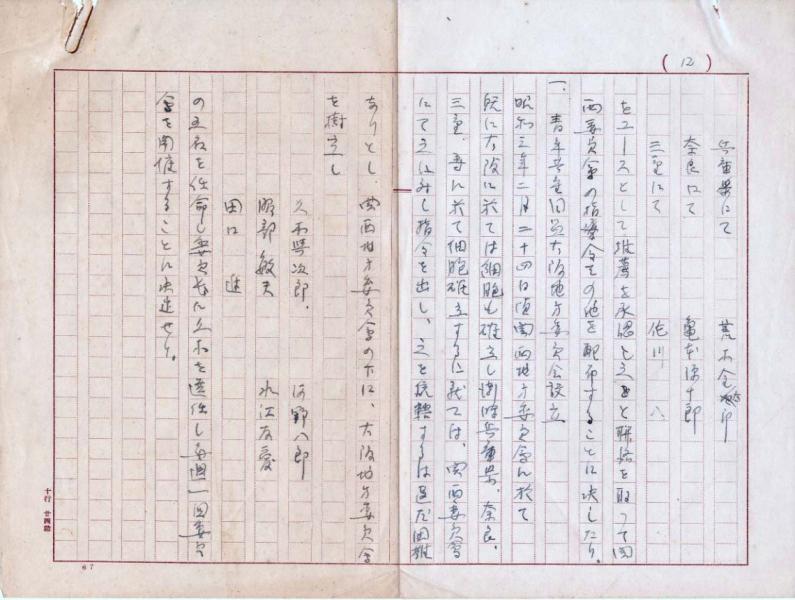 (12)
兵庫県にて 荒木
奈良にて 亀本
三重にて 佐川 八
をユースとして推薦を承認し之等と聯絡を取って関
西委員会の指令その他を配布することに決したり。
一、青年共産同盟大阪地方委員会設立
昭和三年二月二十四日頃関西地方委員会に於て
既に大阪に於ては細胞も確立し兵庫県、奈良、
三重、等に於て細胞確立するに就ては、関西委員会
にて指令を出し、之を統轄するは困難
ありとし、関西地方委員会の下に、大阪地方委員会
を樹立し
久木与次郎、 河野八郎
服部敏夫 水江友愛
田口 進
の五名を任命し委員長に久木を選任し毎週一回委員
会を開催することに決定せり。
十行 廿四詰
67